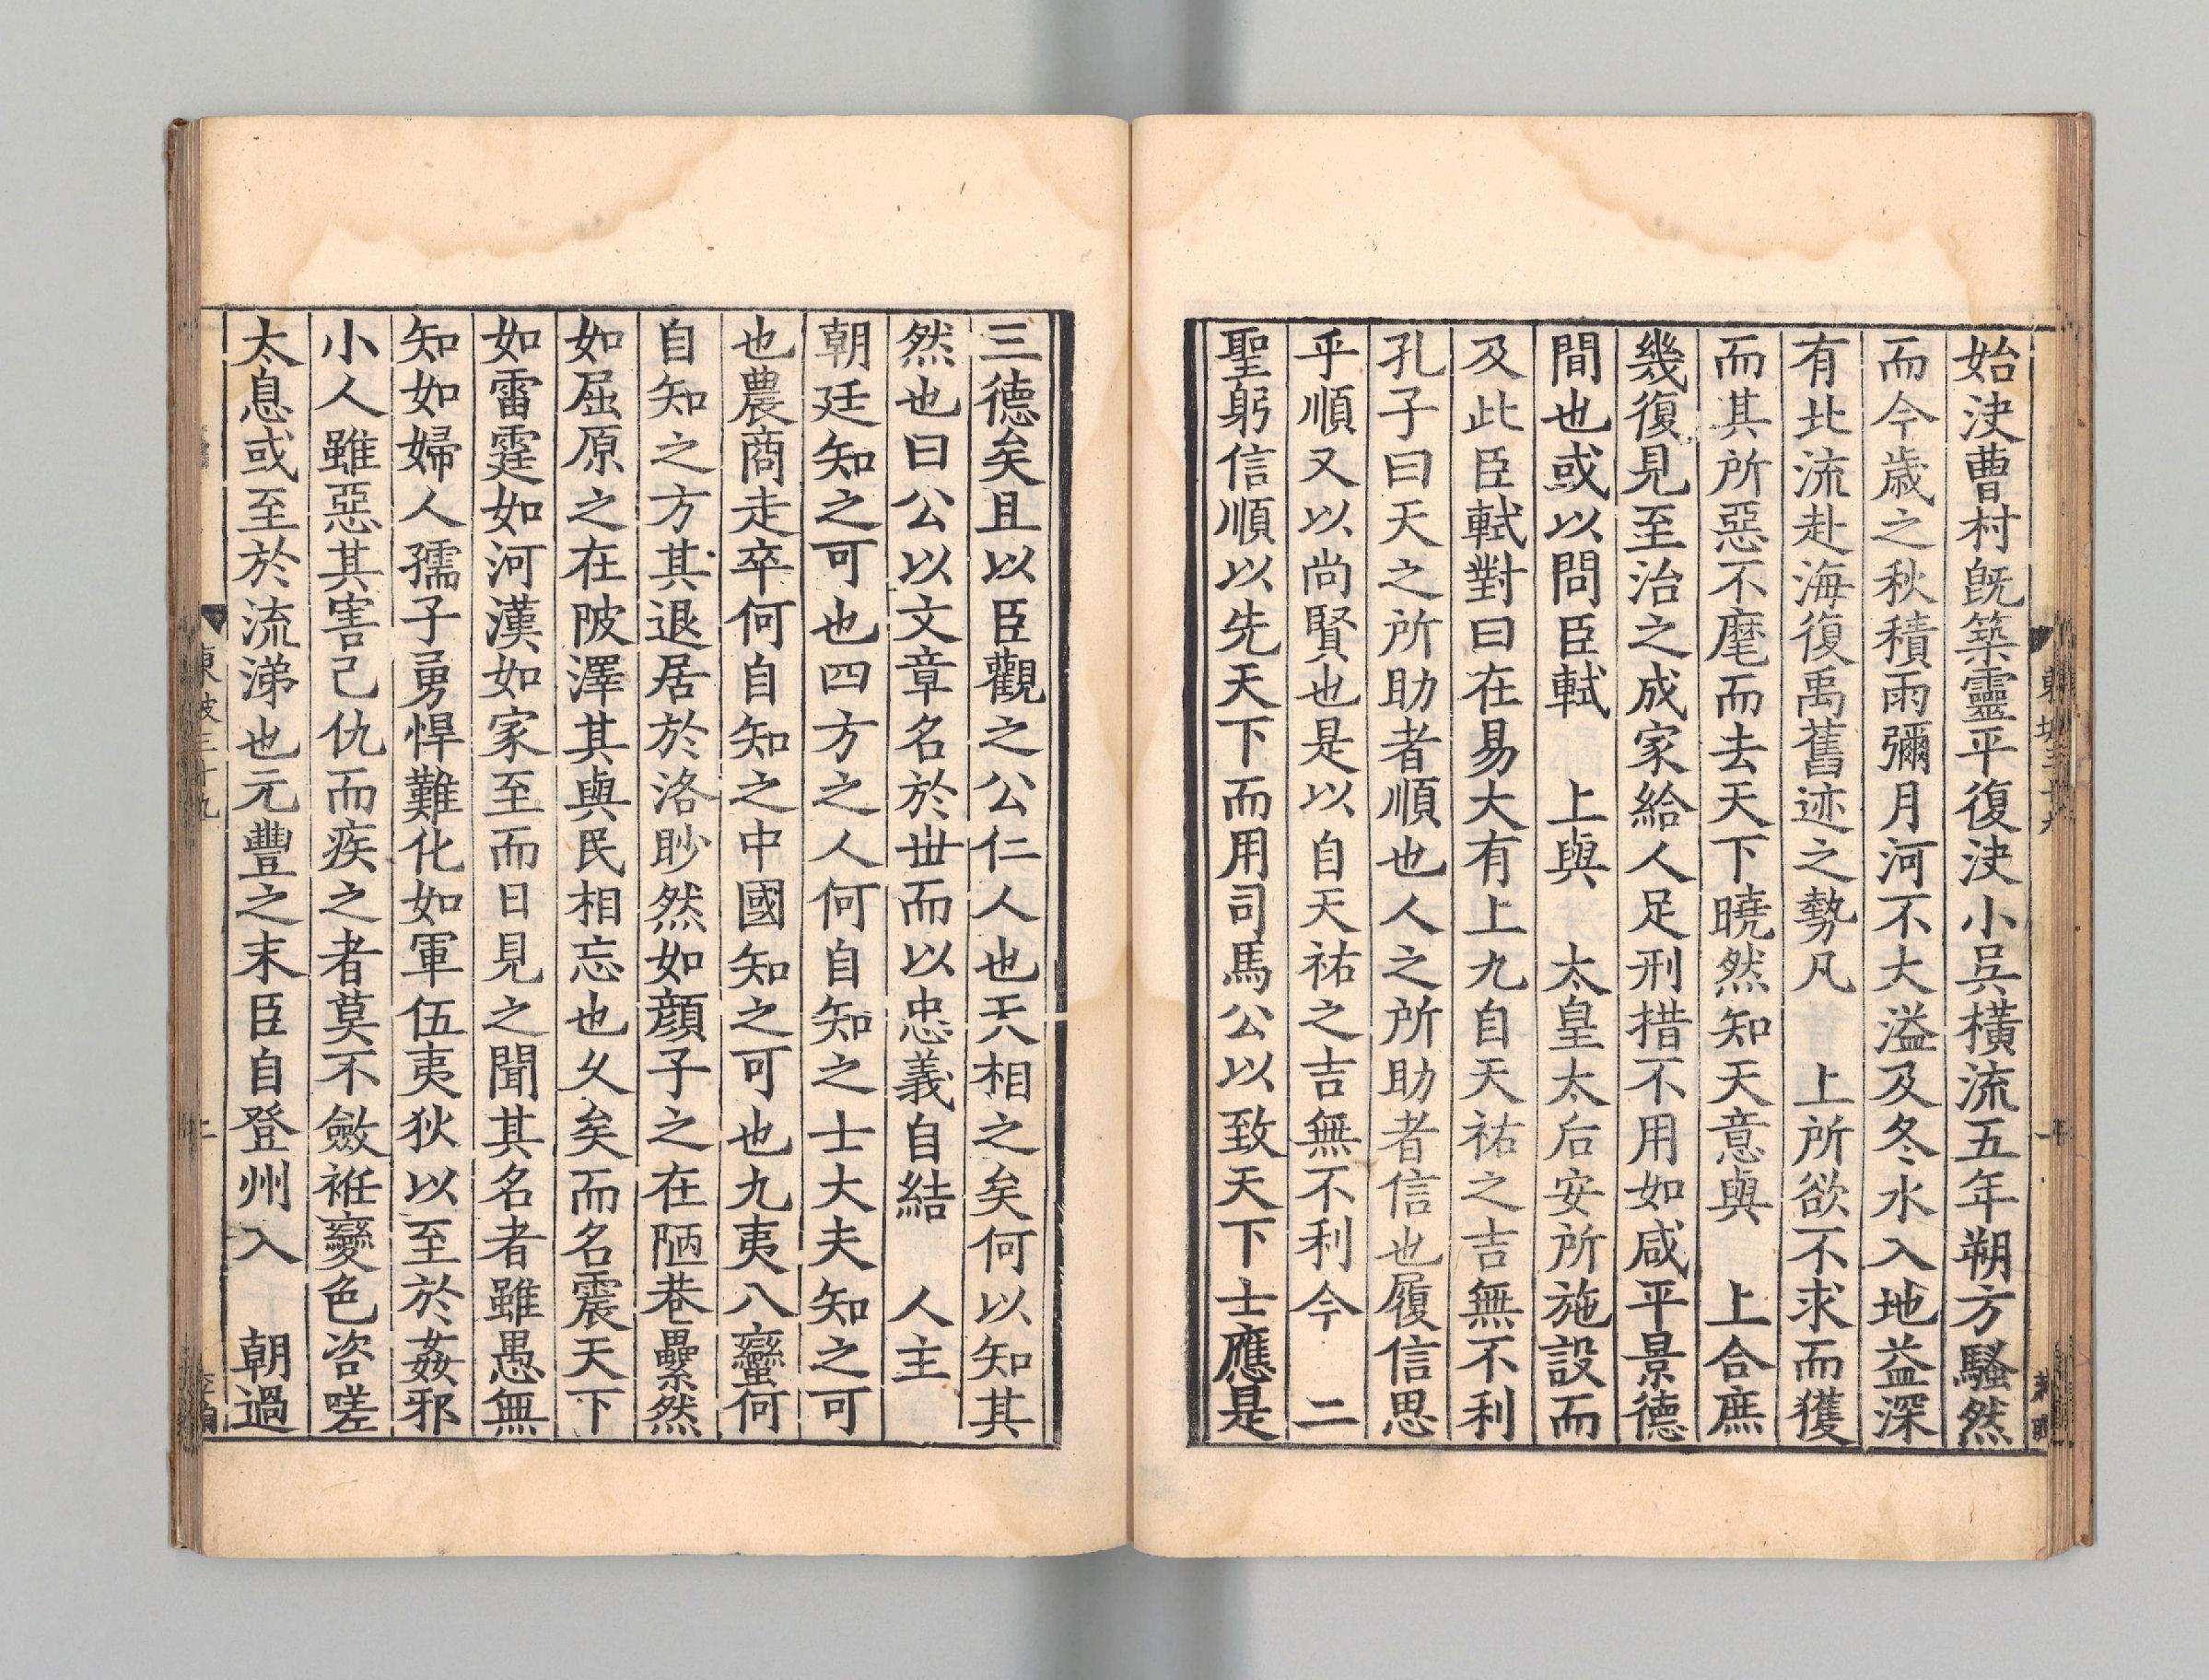 始決曹村旣築靈平復決小吳橫流五年朔方騷然
而今歲之秋積雨彌月河不大溢及冬水入地益深
有北流赴海復禹舊迹之勢凡　上所欲不求而獲
而其所惡不麾而去天下曉然知天意與　上合庶
幾復見至治之成家給人足刑措不用如咸平景德
間也或以問臣軾　上與　太皇太后安所施設而
及此臣軾對曰在易大有上九自天祐之吉無不利
孔子曰天之所助者順也人之所助者信也履信思
乎順又以尚賢也是以自天祐之吉無不利今　二
聖躬信順以先天下而用司馬公以致天下士應是
三德矣且以臣觀之公仁人也天相之矣何以知其
然也曰公以文章名於世而以忠義自結　人主
朝廷知之可也四方之人何自知之士大夫知之可
也農商走卒何自知之中國知之可也九夷八蠻何
自知之方其退居於洛眇然如顏子之在陋巷纍然
如屈原之在陂澤其與民相忘也久矣而名震天下
如雷霆如河漢如家至而日見之聞其名者雖愚無
知如婦人孺子勇悍難化如軍伍夷狄以至於姦邪
小人雖惡其害己仇而疾之者莫不斂袵變色咨嗟
太息或至於流涕也元豐之末臣自登州入　朝過
東坡三十九
二